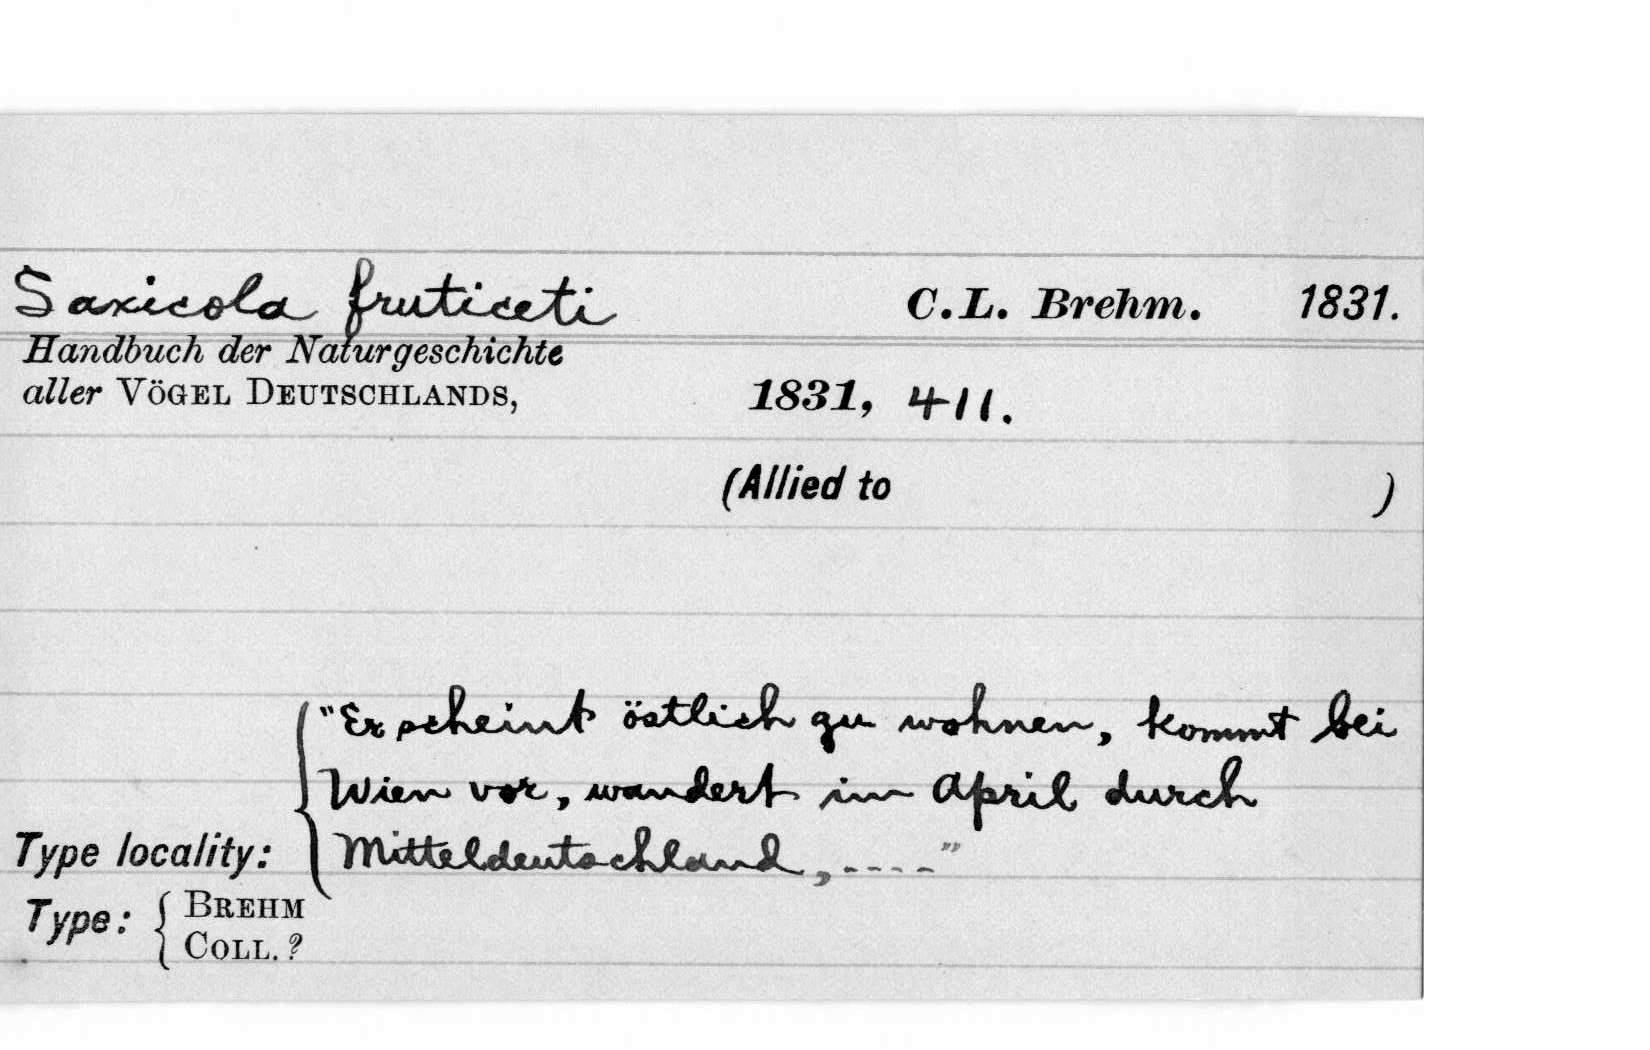 Saxicola fruticeti C.L. Brehm. 1831.
Handbuch der Naturgeschichte
aller VÖGEL DEUTSCHLANDS, 1831, 411.
(Allied to )
"Er scheint östlich zu wohnen, kommt bei
Wien vor, wandert im April durch
Type locality: Mitteldeutschland, ----"
Type: BREHM
COLL. ?